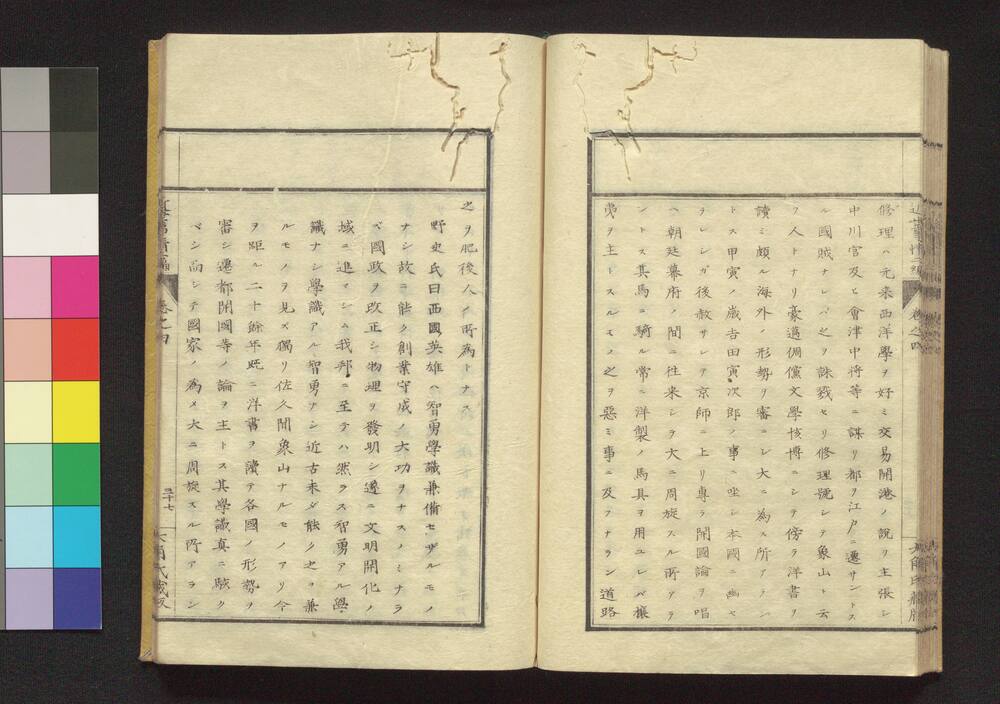 修理ハ元来西洋學ヲ好ミ交易開港ノ說ヲ主張シ
中川宮及ヒ會津中将等ニ謀リ都ヲ江戸ニ遷サントス
ル國賊ナレバ之ヲ誅戮セリ修理號シテ象山ト云
フ人トナリ豪邁倜儻文學該博ニシテ傍ラ洋書ヲ
讀ミ頗ル海外ノ形勢ヲ審ニシ大ニ為ス所アラン
トス甲寅ノ歳吉田寅次郎ノ事ニ坐シ本國ニ幽セ
ラレシガ後赦サレテ京師ニ上リ專ラ開國論ヲ唱
ヘ朝廷幕府ノ間ニ往来シテ大ニ周旋スル所アラ
ントス其馬ニ騎ル常ニ洋製ノ馬具ヲ用ユレバ攘
夷ヲ主トスルモノ之ヲ惡ミ事ニ及フナラン道路
之ヲ肥後人ノ所為トナス
野史氏曰西國英雄ハ智勇學識兼備セザルモノ
ナシ故ニ能ク創業守成ノ大功ヲナスノミナラ
ベ國政ヲ改正シ物理ヲ發明シ遂ニ文明開化ノ
域ニ進マシム我邦ニ至テハ然ラス智勇アル學
識ナシ學識アル智勇ナシ近古未ダ能ク之ヲ兼
ルモノヲ見ズ獨リ佐久間象山ナルモノアリ今
ヲ距ル二十餘年既ニ洋書ヲ讀テ各國ノ形勢ヲ
審シ遷都開國等ノ論ヲ主トス其學識真ニ駭ク
ベシ而シテ國家ノ為メ大ニ周旋スル所アラン
卷之四
三十七